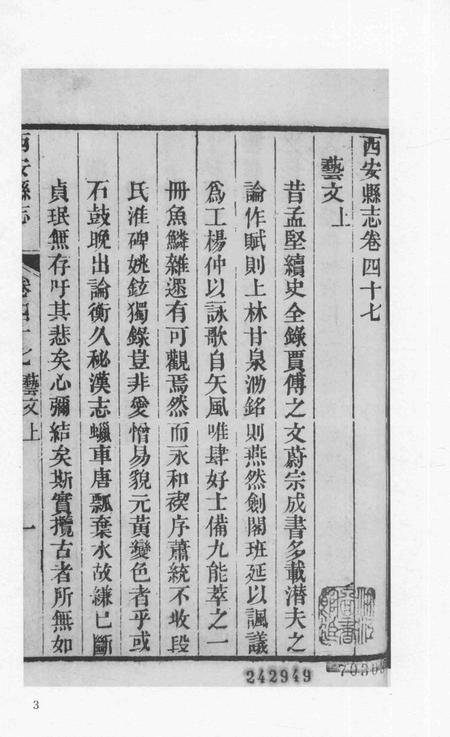 西安縣志卷四十七
藝文上
昔孟堅續史全錄賈傅之文蔚宗成書多載潛夫之
論作賦則上林甘泉泐銘則燕然劍閣班延以諷議
爲工楊仲以詠歌自矢風唯肆好士備九能萃之一
冊魚鱗雜遝有可觀焉然而永和禊序蕭統不收段
氏淮碑姚鉉獨錄豈非愛憎易貌元黃變色者乎或
石鼓晚出論衡久秘漢志蠟車唐瓢棄水故縑已斷
貞珉無存吁其悲矣心彌結矣斯實攬古者所無如
西安縣志
卷四十七藝文上
一
242949
3